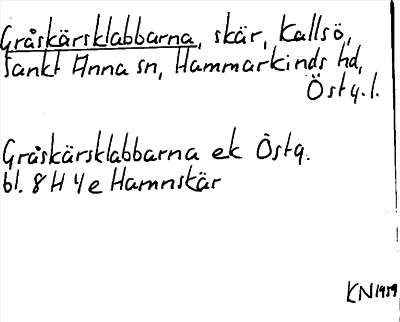 Gråskärsklabbarna, skär, Kallsö,
Sankt Anna sn, Hammarkinds hd,
Östg.l.
Gråskärsklabbarna ek Östg.
bl. 8 H 4 e Hamnskär
KN 1959